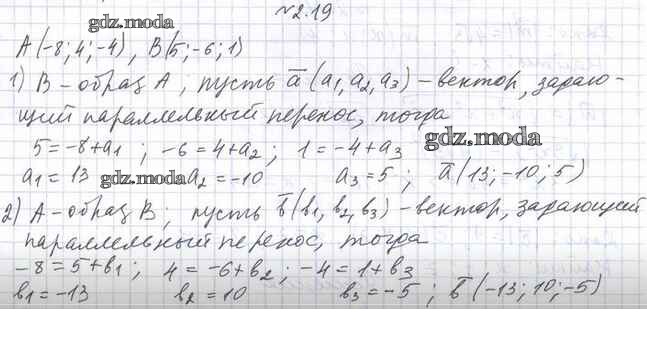 №2.19
gdz.moda
A(-8; 4; -4), B(5; -6; 1)
1) B – образ A; пусть a̅ (a₁, a₂, a₃) – вектор, задаю-
щий параллельный перенос, тогда
gdz.moda
5 = -8 + a₁; -6 = 4 + a₂; 1 = -4 + a₃
a₁ = 13 gdz.moda a₂ = -10 a₃ = 5; a̅ (13; -10; 5)
2) A – образ B; пусть b̅ (b₁, b₂, b₃) – вектор, задающий
параллельный перенос, тогда
-8 = 5 + b₁; 4 = -6 + b₂; -4 = 1 + b₃
b₁ = -13 b₂ = 10 b₃ = -5; b̅ (-13; 10; -5)